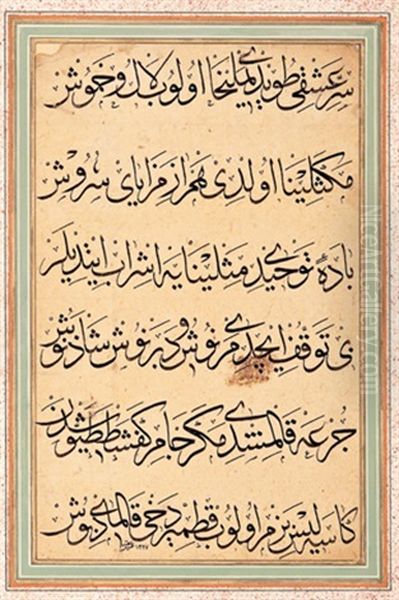 سر عشقی طویدی یملیخا اولوب لال و خموش
مكثلینا اولدی همراز مزایای سروش
بادهٔ توحیدی مثلینایه اشراب ایتدیلر
بی توقف ایچدی مرنوش و دبرنوش شاذنوش
جرعه قالمشدی مكر كفشططیوشدن
كاسه لیس بزم اولوب قطمیر دخی قالمدی بوش
NiceArtGallery.com